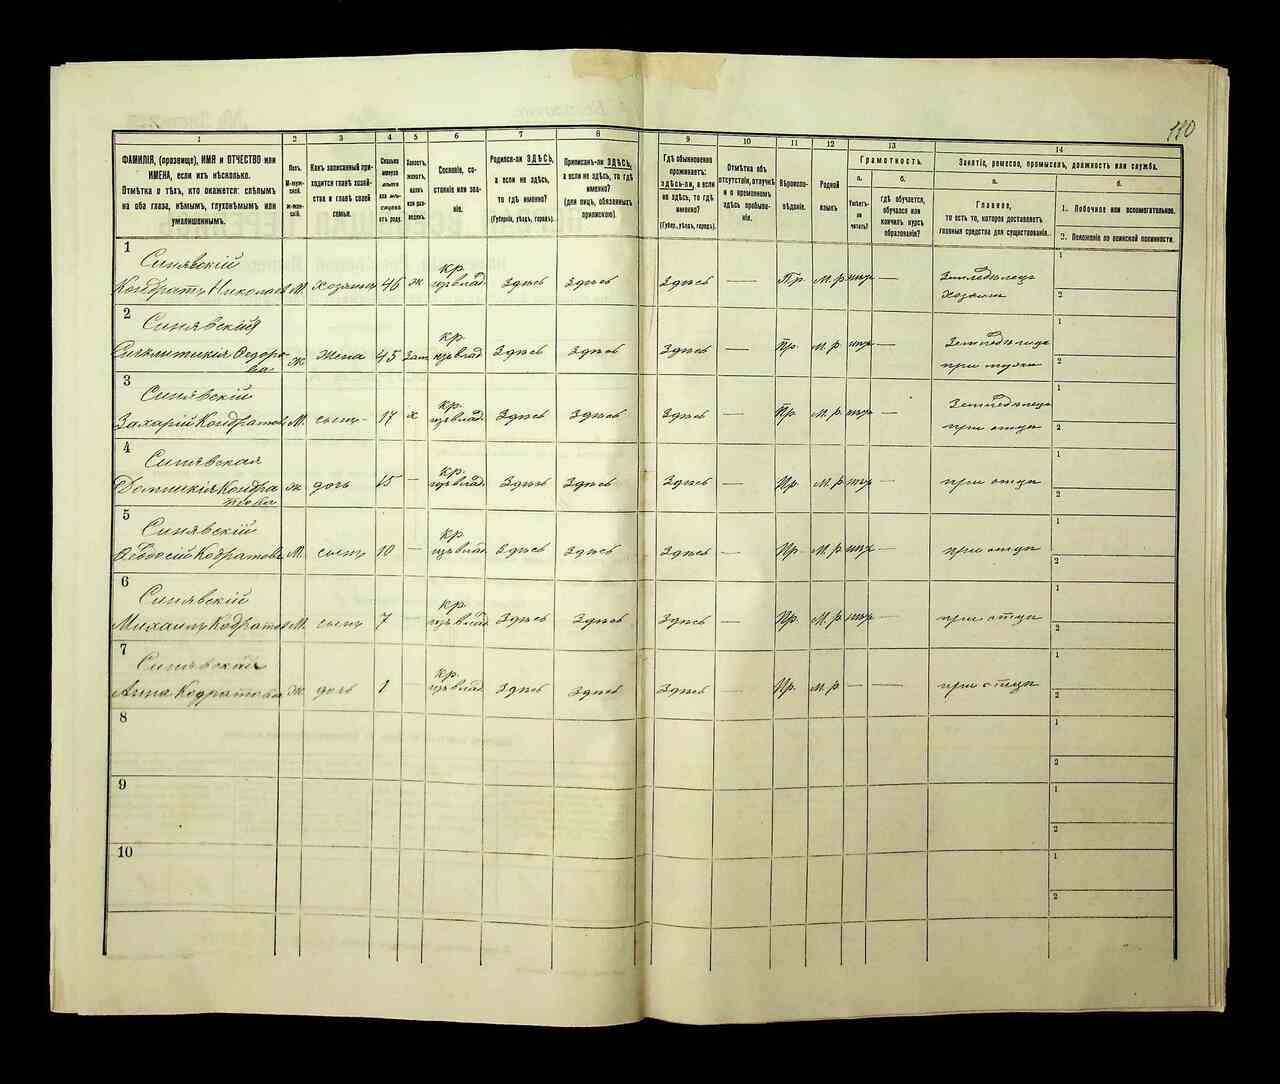 110
1 2 3 4 5 6 7 8 9 10 11 12 13 14
ФАМИЛІЯ, (прозвище), ИМЯ и ОТЧЕСТВО или
ИМЕНА, если ихъ нѣсколько.
Отмѣтка о тѣхъ, кто окажется: слѣпымъ
на оба глаза, нѣмымъ, глухонѣмымъ или
умалишеннымъ.
Полъ.
М-муж-
ской.
Ж-жен-
скій.
Какъ записанный при-
ходится главѣ хозяй-
ства и главѣ своей
семьи.
Сколько
минуло
лѣтъ
или мѣ-
сяцевъ
отъ роду.
Холостъ,
женатъ,
вдовъ
или раз-
веденъ.
Сословіе, со-
стояніе или зва-
ніе.
Родился-ли ЗДѢСЬ,
а если не здѣсь,
то гдѣ именно?
(Губернія, уѣздъ, городъ).
Приписанъ-ли ЗДѢСЬ,
а если не здѣсь, то гдѣ
именно?
(для лицъ, обязанныхъ
припиской).
Гдѣ обыкновенно
проживаетъ:
здѣсь-ли, а если
не здѣсь, то гдѣ
именно?
(Губер., уѣздъ, городъ).
Отмѣтка объ
отсутствіи, отлучкѣ
и о временномъ
здѣсь пребыва-
ніи.
Вѣроиспо-
вѣданіе.
Родной
языкъ
Грамотность.
а.
Умѣетъ-
ли
читать?
б.
гдѣ обучается,
обучался или
кончилъ курсъ
образованія?
Занятіе, ремесло, промыселъ, должность или служба.
а.
Главное,
то есть то, которое доставляетъ
главныя средства для существованія.
б.
1. Побочное или вспомогательное.
2. Положеніе по воинской повинности.
1
Синявскій кр.
Кондратъ Николаев М. хозяинъ 46 ж изъ влад. Здѣсь Здѣсь Здѣсь — Пр. М.р. — Земледѣлецъ
хозяинъ
1
2
2
Синявскій кр.
Федоро
ва Ж жена 45 зам. изъ влад Здѣсь Здѣсь Здѣсь — Пр. М.р. —
при
1
2
3
Синявскій кр.
Захарій Кондратов М. сынъ 17 х изъ влад. Здѣсь Здѣсь Здѣсь — Пр. М.р. — Земледѣлецъ
при отцѣ
1
2
4
Синявская кр.
Домникія Кондра
това ж дочь 15 — изъ влад. Здѣсь Здѣсь Здѣсь — Пр. М.р. — при отцѣ
1
2
5
Синявскій кр.
Ѳеодосій Кодратовъ М. сынъ 10 — изъ влад. Здѣсь Здѣсь Здѣсь — Пр. М.р. — при отцѣ
1
2
6
Синявскій кр.
Михаилъ Кодратов М. сынъ 7 — изъ влад. Здѣсь Здѣсь Здѣсь — Пр. М.р. — при отцѣ
1
2
7
Синявскій кр.
Анна Кодратова Ж. дочь 1 — изъ влад. Здѣсь Здѣсь Здѣсь — Пр. М.р. — — при отцѣ
1
2
8
1
2
9
1
2
10
1
2